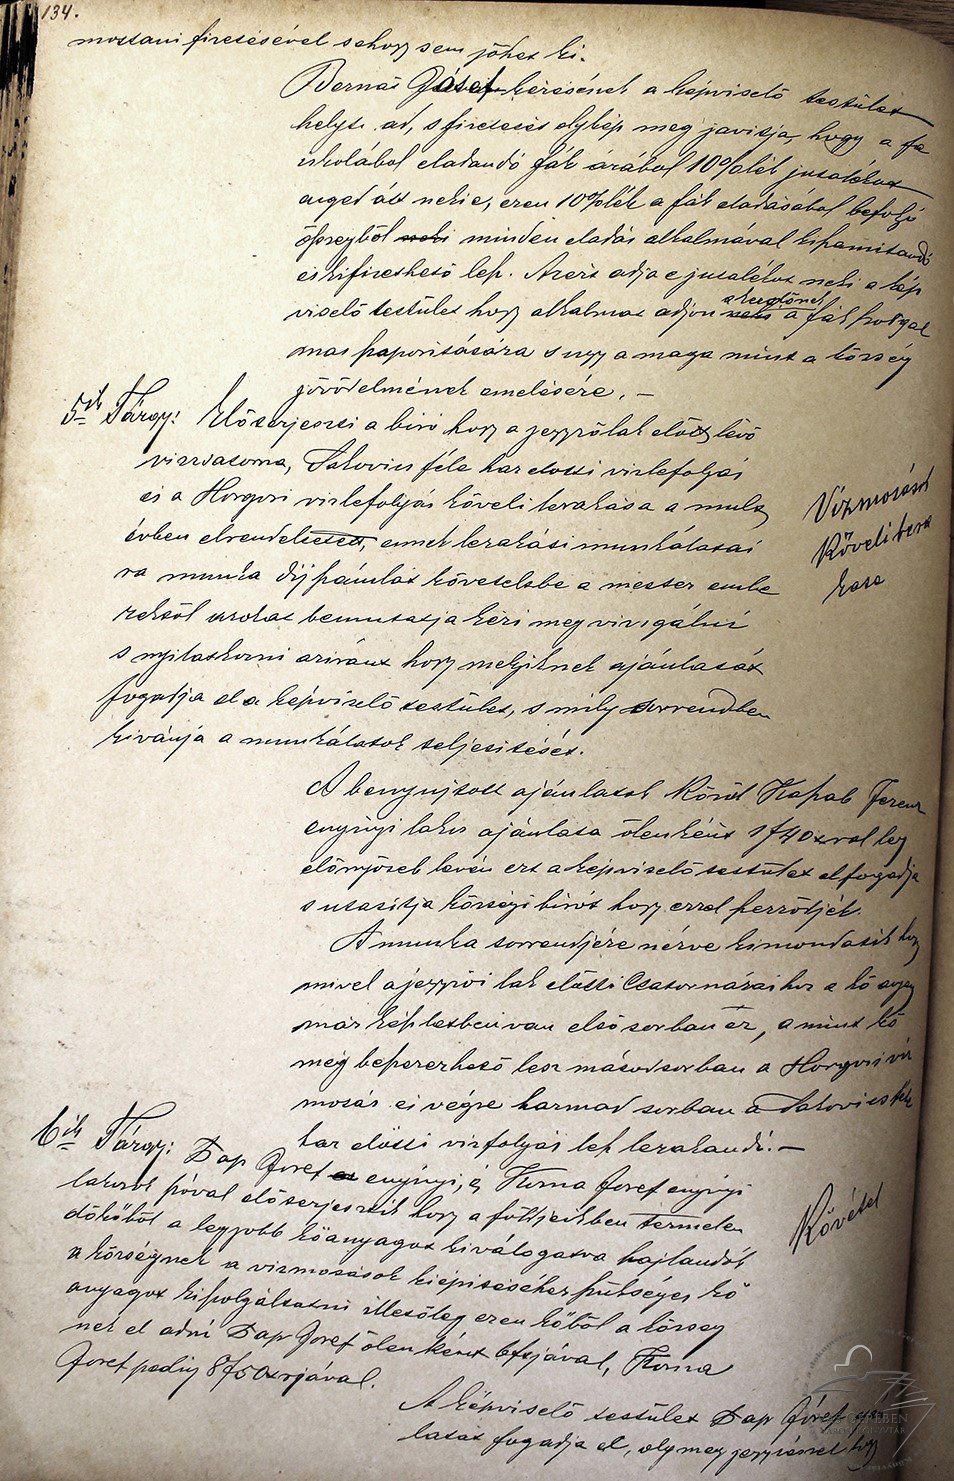 134.
mostani fizetésével sehogy sem jöhet ki.
Bernás József kérésének a képviselő testület
helyt ad, s fizetését olykép meg javitja, hogy a fa
iskolából eladandó fák árából 10%lék jutalékot
enged át neki, ezen 10%lék a fák eladásából befolyó
összegből neki minden eladás alkalmával kiszamitandó
és kifizethető lesz. Azért adja e jutalékot neki a kép
viselő testület hogy alkalmat adjon neki a kezelőnek a fák szorgal
mas szaporitására s ugy a maga mint a község
jövödelmének emelésére. –
5ik Tárgy: Előterjeszti a biró hogy a jegyzőlak előtt lévő
vizcsatorna, Takovics féle ház előtti vizlefolyás
és a Horgosi vizlefolyás köveli kirakása a mult
évben elrendeltetett, ennek kirakási munkálatai
ra munka díj számlát követelebe a mester embe
rektől azokat bemutatja kéri meg vizsgálni
s nyilatkozni aziránt hogy melyiknek ajánlatát
fogadja el a képviselő testület, s mily sorrendben
kivánja a munkálatok teljesitését.
Vizmosások
Kövelikira
kása
A benyujtott ajánlatok közül Kaszab Ferencz
enyingi lakos ajánlata ölenként 1f40xral leg
előnyösebb lévén ezt a képviselő testület elfogadja
s utasitja községi birót hogy ezzel szerződjék.
A munka sorrendjére nézve kimondatik hogy
mivel a jegyzői lak előtti Csatornázáshoz a kő anyag
már készletben van első sorban ez, a mint kő
még beszerezhető lesz másodsorban a Horgosi viz
mosás és végre harmad sorban a Takovics féle
ház előtti vizfolyás lesz kirakandó. –
6ik Tárgy: Pap József enyingi, és Korna József enyingi
lakosok szóval előterjesztik hogy a földjeikben termelen
dő kőből a legjobb kőanyagot kiválogatva hajlandók
a községnek a vizmosások kiépitéséhez szükséges kő
anyagot kiszolgáltatni illetőleg ezen kőből a község
nek el adni Pap József ölenként 6fjával, Korna
József pedig 8f50xrjával.
Kővétel
A képviselő testület Pap József ajan
latát fogadja el, oly meg jegyzéssel hogy